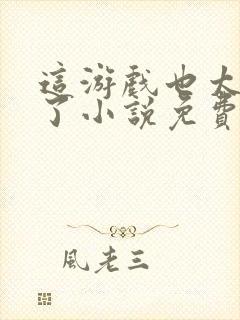 這游戲也太
了小說免費
風老三